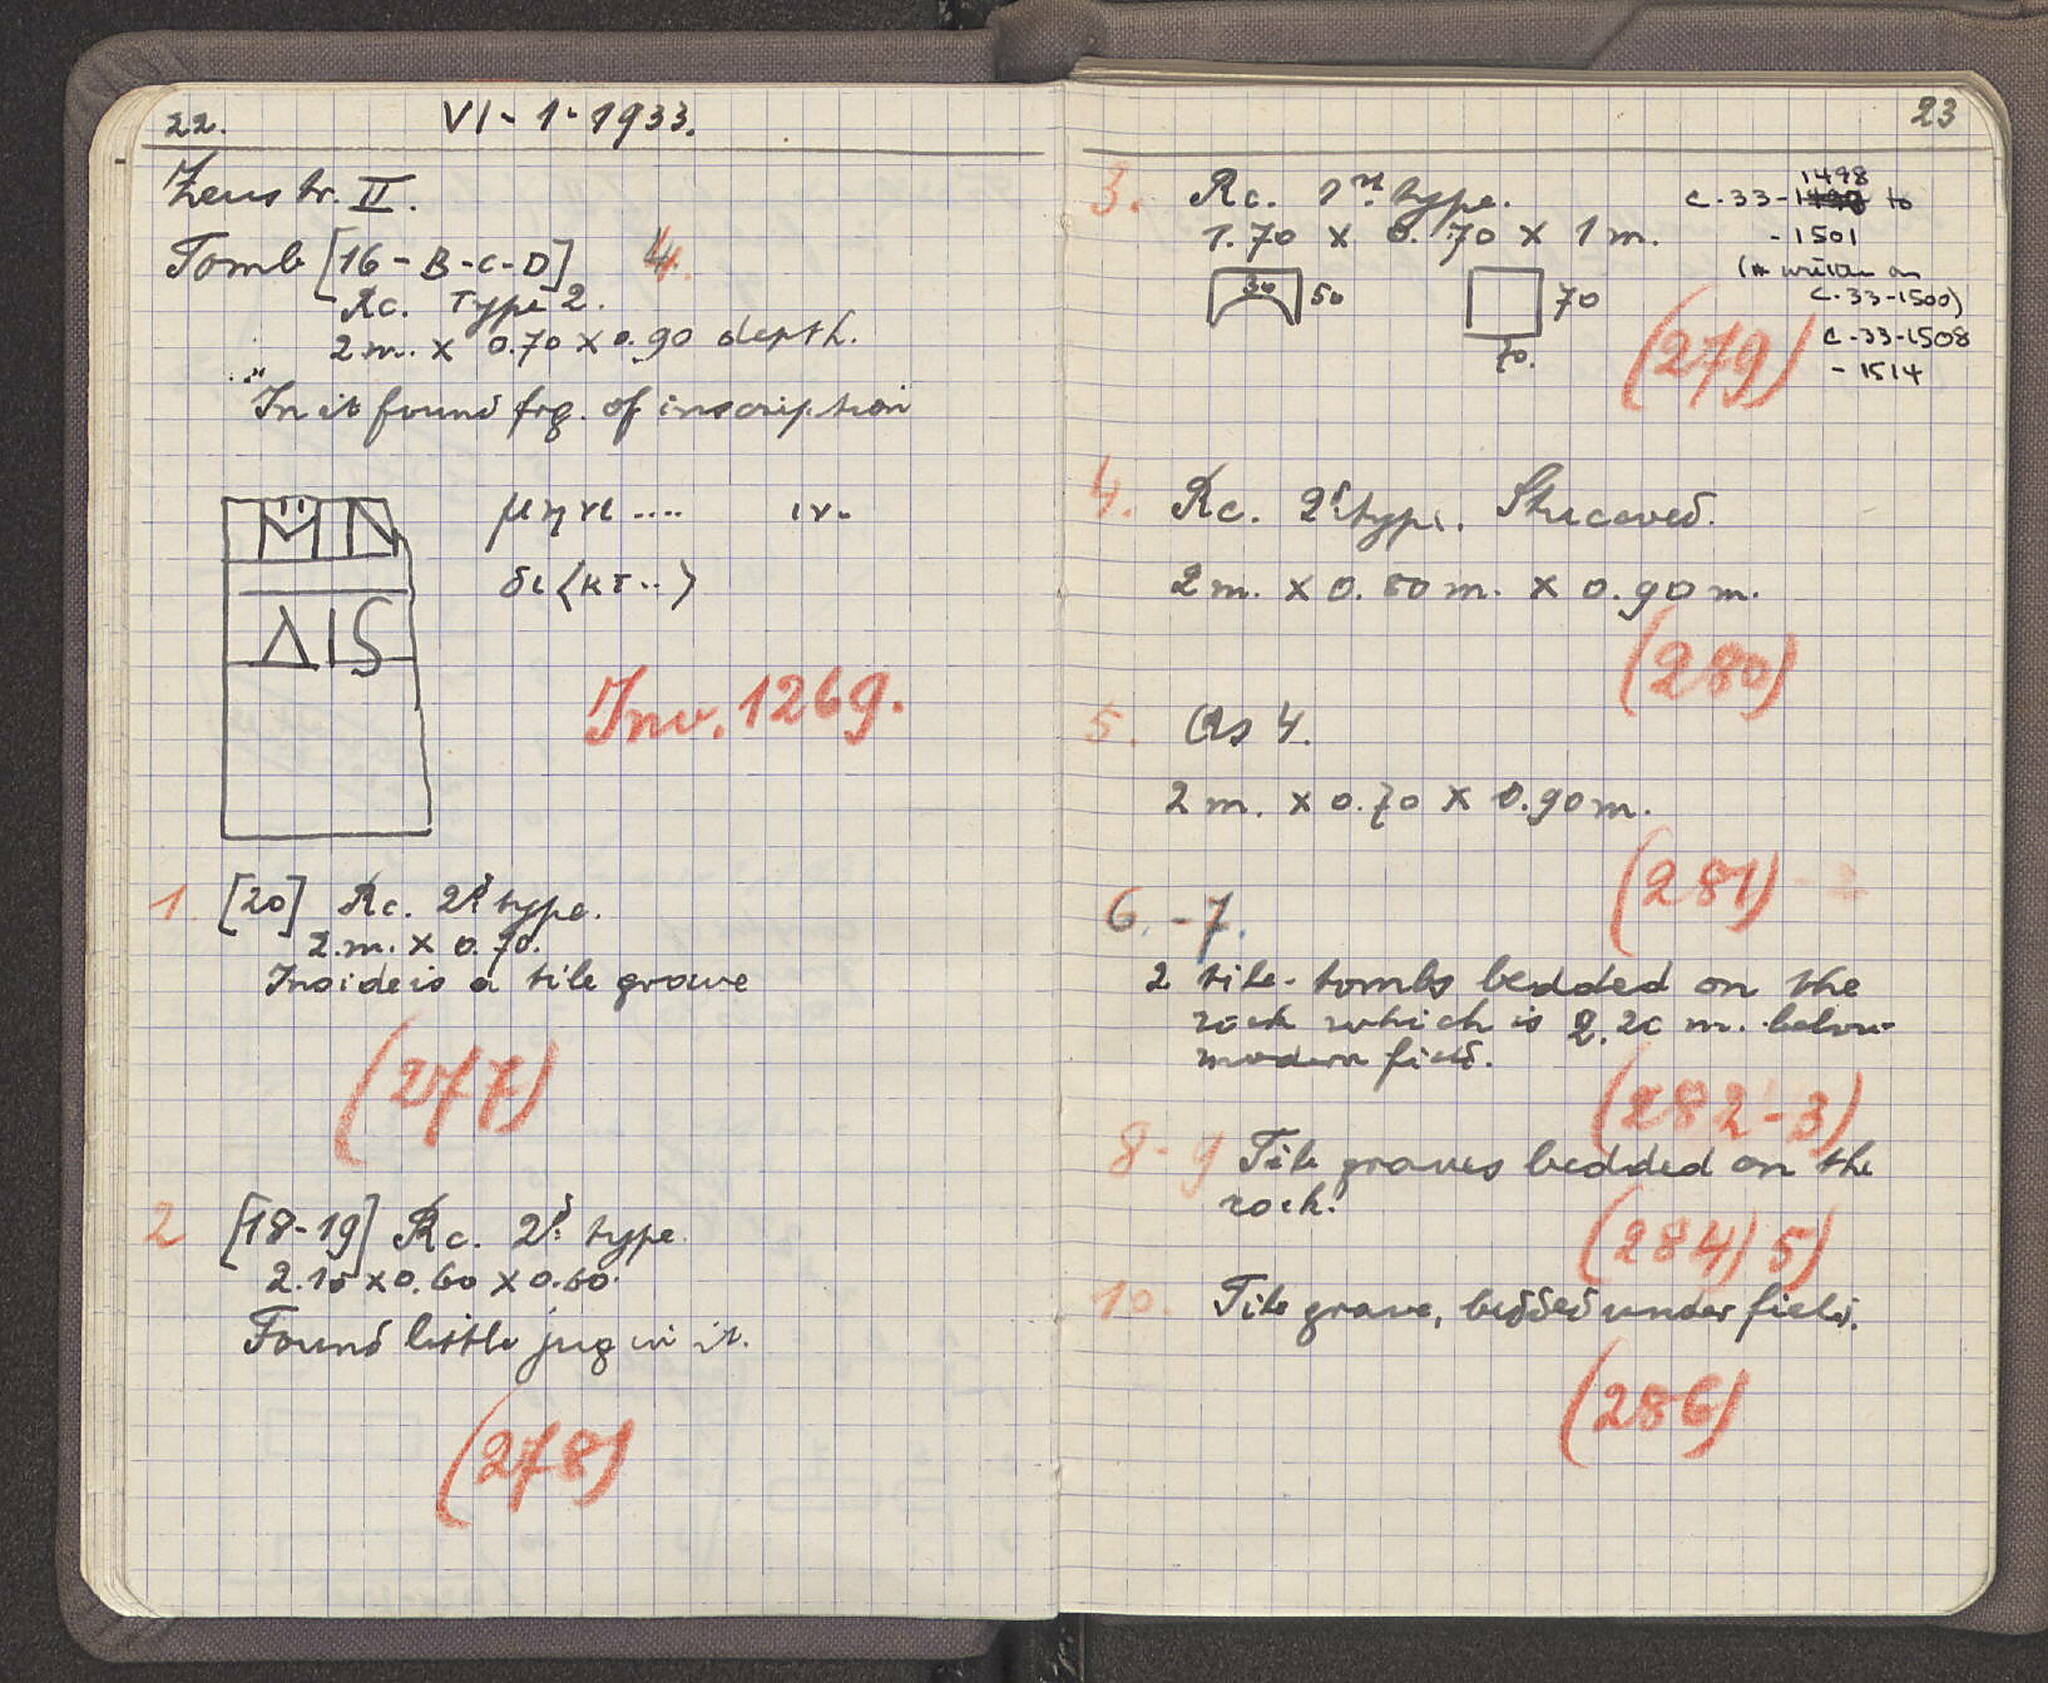 22.
VI-1-1933.
Zeus tr. II.
Tomb [16-B-C-D] 4.
Rc. Type 2.
2 m. x 0.70 x 0.90 depth.
In it found frg. of inscription
ΜΝ
ΔΙS
μηνι .... ιν.
δι〈κτ..〉
Inv. 1269.
1. [20] Rc. 2d type.
2.m. x 0.70.
Inside is a tile grave
(277)
2 [18-19] Rc. 2d type.
2.15 x 0.60 x 0.60.
Found little jug in it.
(278)
23
3. Rc. 1st type.
1.70 x 0.70 x 1 m.
30 50
70
70.
1498
C-33- to
-1501
(# written on
C-33-1500)
C-33-1508
-1514
(279)
4. Rc. 2d type. Stuccoed.
2 m. x 0.80 m. x 0.90 m.
(280)
5. As 4.
2 m. x 0.70 x 0.90 m.
(281)
6.-7.
2 tile-tombs bedded on the
rock which is 2.20 m. below
modern field.
(282-3)
8-9 Tile graves bedded on the
rock.
(284) 5)
10. Tile grave, bedded under field.
(286)